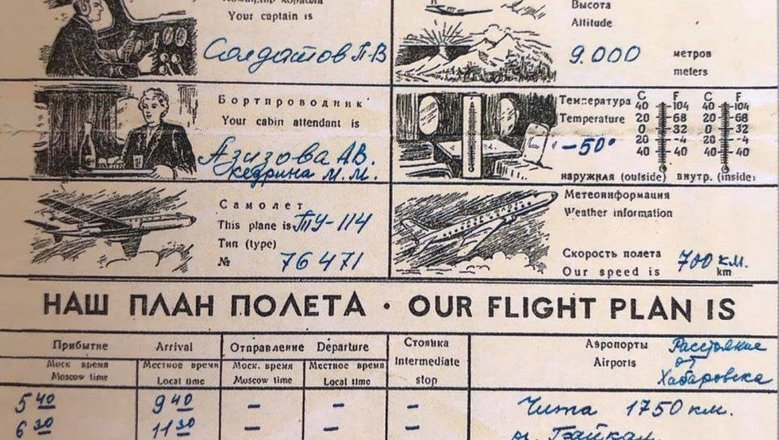 Your captain is
Солдатов П-В
Высота
Altitude
9.000 метров
meters
Бортпроводник
Your cabin attendant is
Азизова АВ.
Кедрина М.М.
Температура
Temperature
C F C F
40 104 40 104
20 68 20 68
0 32 0 32
20 -4 20 -4
40 40 40 40
-50°
наружная (outside) внутр. (inside)
Самолет
This plane is ТУ-114
Тип (type)
№ 76471
Метеоинформация
Weather information
Скорость полета
Our speed is 700 км.
km
НАШ ПЛАН ПОЛЕТА · OUR FLIGHT PLAN IS
Прибытие Arrival Отправление Départure Стоянка Intermediate stop Аэропорты Airports Расстояние от Хабаровска
Моск время Moscow time Местное время Local time Моск. время Moscow time Местное время Local time
5 40 9 40 – – – Чита 1750 км.
6 30 11 30 – – – Байкал